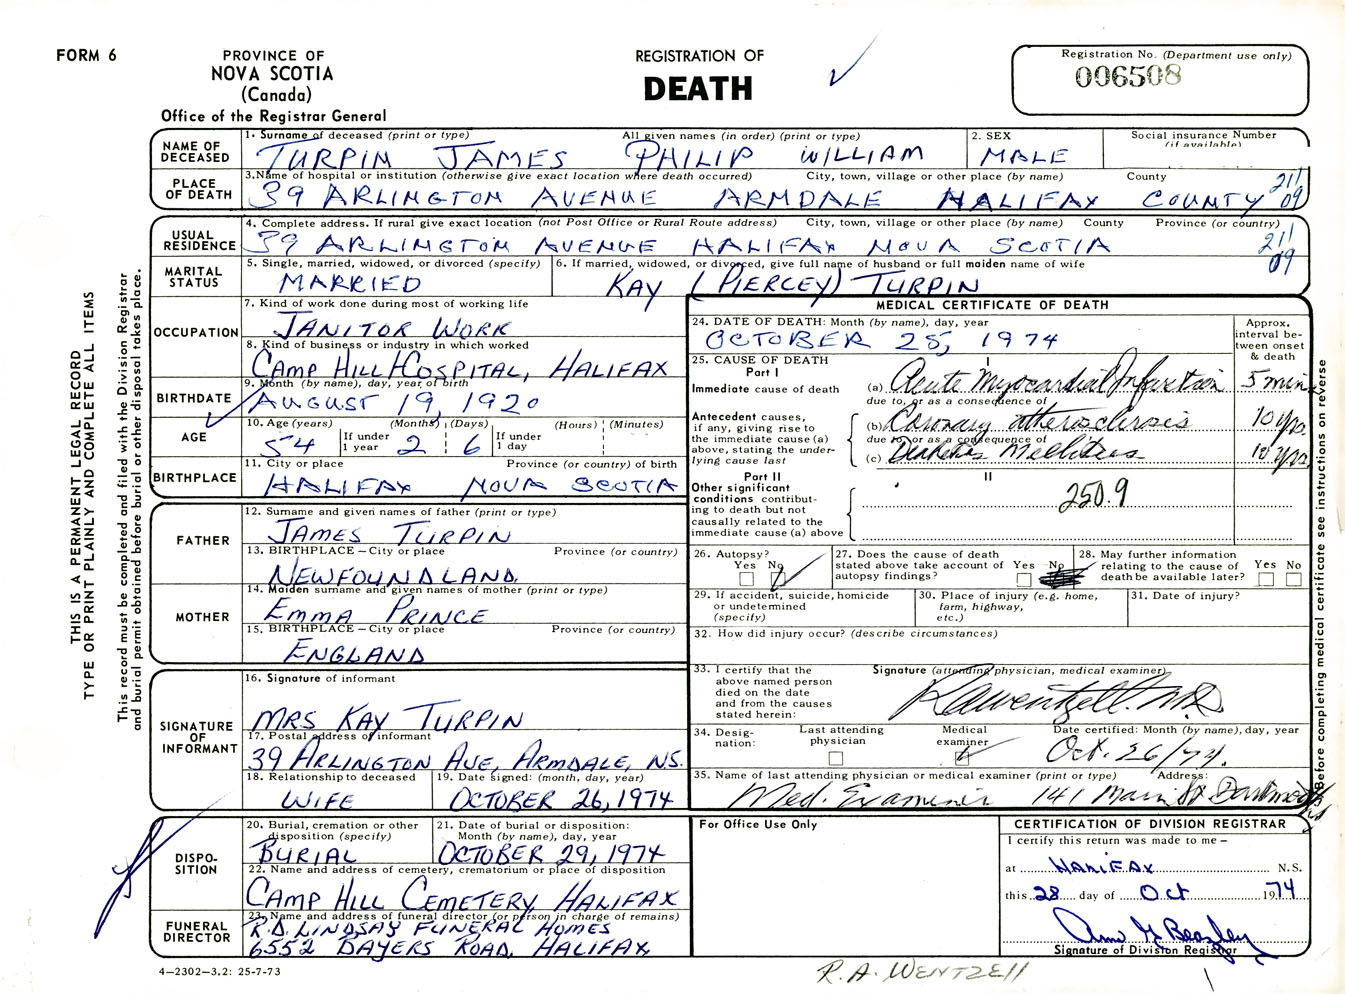 FORM 6
PROVINCE OF
NOVA SCOTIA
(Canada)
Office of the Registrar General
REGISTRATION OF
DEATH
Registration No. (Department use only)
006508
NAME OF DECEASED
1. Surname of deceased (print or type) All given names (in order) (print or type)
TURPIN JAMES PHILIP WILLIAM
2. SEX
MALE
Social insurance Number
(if available)
PLACE OF DEATH
3. Name of hospital or institution (otherwise give exact location where death occurred) City, town, village or other place (by name) County
39 ARLINGTON AVENUE ARMDALE HALIFAX COUNTY
211
09
USUAL RESIDENCE
4. Complete address. If rural give exact location (not Post Office or Rural Route address) City, town, village or other place (by name) County Province (or country)
39 ARLINGTON AVENUE HALIFAX NOVA SCOTIA
211
09
MARITAL STATUS
5. Single, married, widowed, or divorced (specify)
MARRIED
6. If married, widowed, or divorced, give full name of husband or full maiden name of wife
KAY (PIERCEY) TURPIN
OCCUPATION
7. Kind of work done during most of working life
JANITOR WORK
8. Kind of business or industry in which worked
CAMP HILL HOSPITAL, HALIFAX
BIRTHDATE
9. Month (by name), day, year, of birth
AUGUST 19, 1920
AGE
10. Age (years) (Months) (Days) (Hours) (Minutes)
54 If under 1 year 2 6 If under 1 day
BIRTHPLACE
11. City or place Province (or country) of birth
HALIFAX NOVA SCOTIA
FATHER
12. Surname and given names of father (print or type)
JAMES TURPIN
13. BIRTHPLACE – City or place Province (or country)
NEWFOUNDLAND
MOTHER
14. Maiden surname and given names of mother (print or type)
EMMA PRINCE
15. BIRTHPLACE – City or place Province (or country)
ENGLAND
SIGNATURE OF INFORMANT
16. Signature of informant
MRS KAY TURPIN
17. Postal address of informant
39 ARLINGTON AVE, ARMDALE, N.S.
18. Relationship to deceased
WIFE
19. Date signed: (month, day, year)
OCTOBER 26, 1974
DISPO-
SITION
20. Burial, cremation or other disposition (specify)
BURIAL
21. Date of burial or disposition: Month (by name), day, year
OCTOBER 29, 1974
22. Name and address of cemetery, crematorium or place of disposition
CAMP HILL CEMETERY, HALIFAX
FUNERAL DIRECTOR
23. Name and address of funeral director (or person in charge of remains)
R.D. LINDSAY FUNERAL HOMES
6552 BAYERS ROAD, HALIFAX
MEDICAL CERTIFICATE OF DEATH
24. DATE OF DEATH: Month (by name), day, year
OCTOBER 25, 1974
Approx. interval be-
tween onset & death
25. CAUSE OF DEATH
Part I
I
Immediate cause of death
(a) Acute Myocardial Infarction 5 min
due to, or as a consequence of
Antecedent causes,
if any, giving rise to
the immediate cause (a)
above, stating the under-
lying cause last
(b) Coronary atherosclerosis 10 yrs.
due to, or as a consequence of
(c) Diabetes Mellitus 10 yrs.
Part II
II
Other significant
conditions contribut-
ing to death but not
causally related to the
immediate cause (a) above
250.9
26. Autopsy?
Yes No
27. Does the cause of death
stated above take account of
autopsy findings?
Yes No
28. May further information
relating to the cause of
death be available later?
Yes No
29. If accident, suicide, homicide
or undetermined
(specify)
30. Place of injury (e.g. home,
farm, highway,
etc.)
31. Date of injury?
32. How did injury occur? (describe circumstances)
33. I certify that the
above named person
died on the date
and from the causes
stated herein:
Signature (attending physician, medical examiner)
RAWentzell M.D.
34. Desig-
nation:
Last attending physician
Medical examiner
Date certified: Month (by name), day, year
Oct. 26/74.
35. Name of last attending physician or medical examiner (print or type) Address:
Med. Examiner 141 Main St Dartmouth
For Office Use Only
CERTIFICATION OF DIVISION REGISTRAR
I certify this return was made to me –
at HALIFAX N.S.
this 28 day of Oct 1974
Signature of Division Registrar
4–2302–3.2: 25-7-73
R.A. WENTZELL
THIS IS A PERMANENT LEGAL RECORD
TYPE OR PRINT PLAINLY AND COMPLETE ALL ITEMS
This record must be completed and filed with the Division Registrar
and burial permit obtained before burial or other disposal takes place.
Before completing medical certificate see instructions on reverse